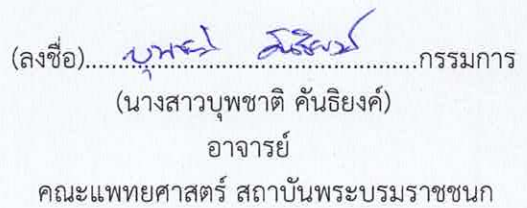 (ลงชื่อ)..... บุพชาติ คันธิยงค์ .....กรรมการ
(นางสาวบุพชาติ คันธิยงค์)
อาจารย์
คณะแพทยศาสตร์ สถาบันพระบรมราชชนก